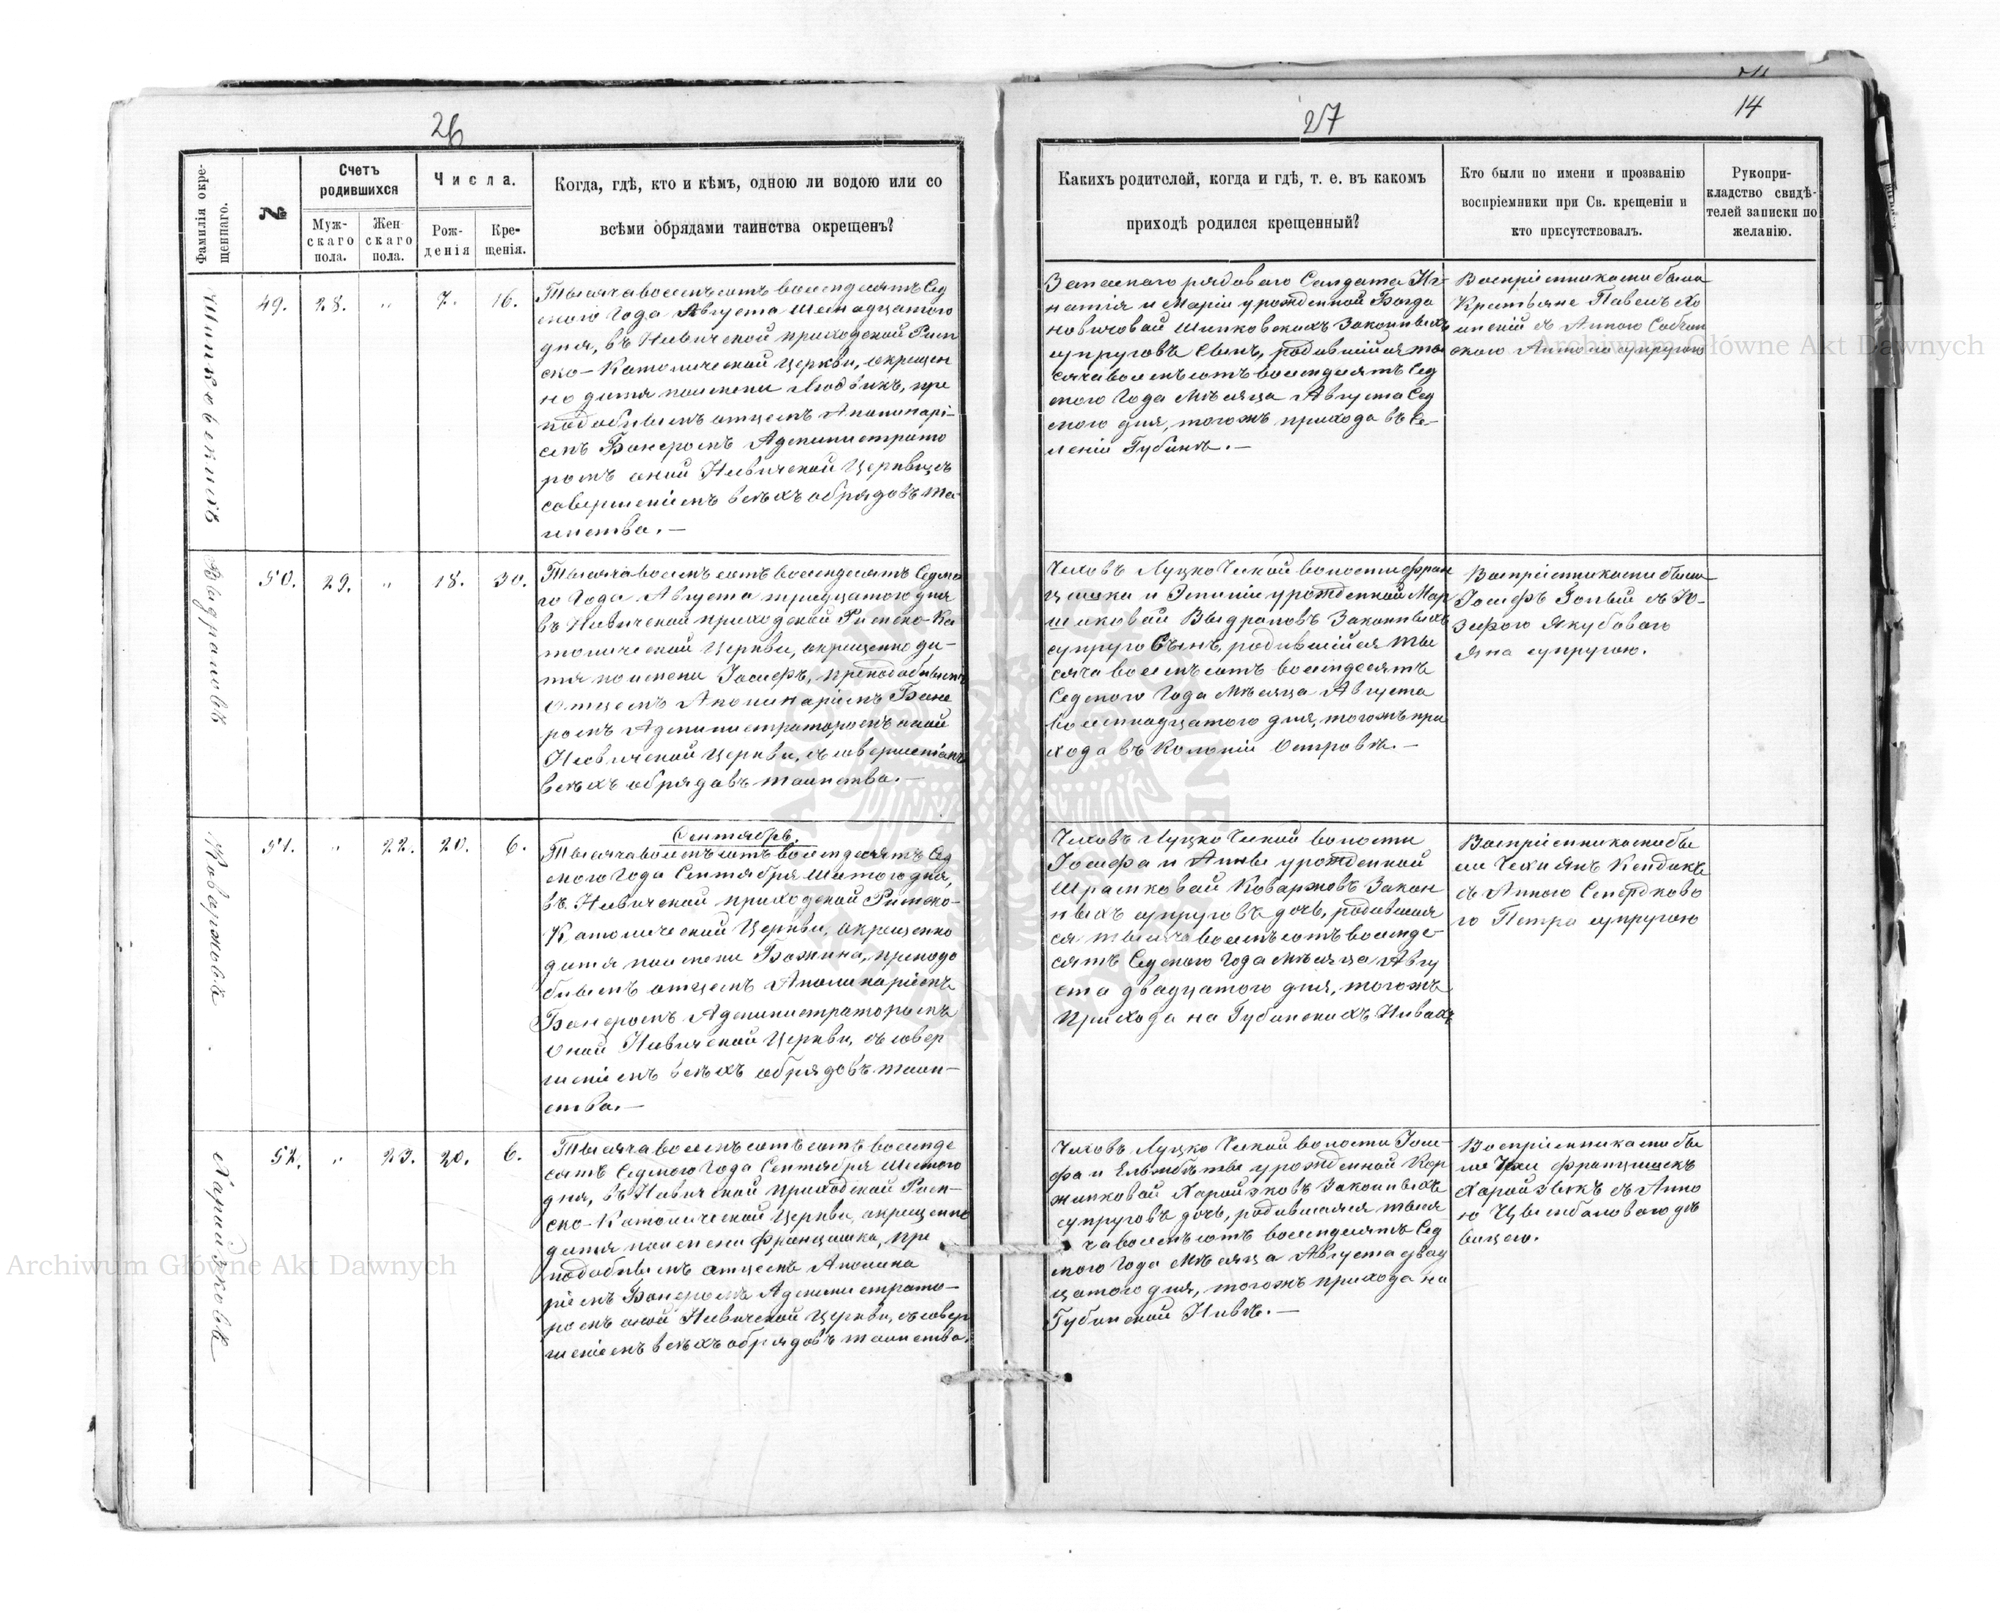 26
27
14
Фамилія окре-
щеннаго.
№
Счетъ
родившихся
Муж-
скаго
пола.
Жен
скаго
пола.
Числа.
Рож-
денія
Кре-
щенія.
Когда, гдѣ, кто и кѣмъ, одною ли водою или со
всѣми обрядами таинства окрещенъ?
Какихъ родителей, когда и гдѣ, т. е. въ какомъ
приходѣ родился крещенный?
Кто были по имени и прозванію
воспріемники при Св. крещеніи и
кто присутствовалъ.
Рукопри-
кладство свидѣ-
телей записки по
желанію.
Шипковскій
49. 28. „ 7. 16.
Тысяча восемьсотъ восемдесятъ Сед
мого Года Августа Шестнадцатого
дня, въ Нивичской приходской Рим
ско-Католической Церкви, окрещен
но дитя по имени Людвикъ, пре
подобнымъ отцемъ Аполинарі-
емъ Бонеромъ Администрато
ромъ оной Нивичской Церкви, съ
совершеніемъ всѣхъ обрядовъ та-
инства.—
Запасного рядового Солдата Иг-
натія и Маріи урожденной Богда
новичовой Шипковскихъ Законныхъ
супруговъ Сынъ, родившійся ты
сяча восемьсотъ восемдесятъ Сед
мого Года Мѣсяца Августа Сед
мого дня, тогожъ прихода въ Се-
леніи Губинъ.—
Воспріемниками были
Крестьяне Павелъ
съ Анною
супругою
Выдраловъ
50. 29. „ 18. 30.
Тысяча восемьсотъ восемдесятъ Седмо
го Года Августа тридцатого дня
въ Нивичской приходской Римско-Ка
толической Церкви, окрещенно ди-
тя по имени Іосифъ, преподобнымъ
Отцемъ Аполинаріемъ Боне
ромъ Администраторомъ оной
Нивичской Церкви, съ совершеніемъ
всѣхъ обрядовъ таинства.—
Чеховъ Луцко Чской волости Фран
цишка и урожденной Мар
шиковой Выдраловъ Законныхъ
супруго Сынъ, родившійся ты
сяча восемьсотъ восемдесятъ
Седмого Года Мѣсяца Августа
Восемнадцатого дня, тогожъ при
хода въ Колоніи Островѣ.—
Воспріемниками были
Іосифъ Голый съ Ю-
зефою Якубовою
Яна супругою.
Коваржова
51. „ 22. 20. 6.
Сентябрь.
Тысяча восемьсотъ восемдесятъ Сед
мого Года Сентября Шестого дня,
въ Нивичской приходской Римско-
Католической Церкви, окрещенно
дитя по имени Божина, преподо
бнымъ отцемъ Аполинаріемъ
Бонеромъ Администраторомъ
Оной Нивичской Церкви, съ совер
шеніемъ всѣхъ обрядовъ таин-
ства.—
Чеховъ Луцко Чской волости
Іосифа и Анны урожденной
Шрамковой Коваржовъ Закон
ныхъ супруговъ дочь, родившая
ся тысяча восемьсотъ восемде-
сятъ Седмого Года Мѣсяца Авгу
ста двадцатого дня, тогожъ
Прихода на Губинскихъ Нивахъ
Воспріемниками бы
ли Чехи Янъ
съ Анною
го Петра супругою
Харойзкова
52. „ 23. 20. 6.
Тысяча восемьсотъ сотъ восемде
сятъ Седмого Года Сентября Шестого
дня, въ Нивичской приходской Рим-
ско-Католической Церкви, окрещенно
дитя по имени Францишка, пре
подобнымъ отцемъ Аполина
ріемъ Бонеромъ Администрато-
ромъ оной Нивичской Церкви, съ совер
шеніемъ всѣхъ обрядовъ таинства.
Чеховъ Луцко Чской волости Іоси-
фа и Ельжбѣты урожденной Кор
жинковой Харойзковъ Законныхъ
супруговъ дочь, родившаяся тыся
ча восемьсотъ восемдесятъ Сед
мого Года Мѣсяца Августа двад
цатого дня, тогожъ прихода на
Губинской Нивѣ.—
Воспріемниками бы
ли Чехи Францишекъ
Харойзвекъ съ Анно
ю Цвимбаловою дѣ
вицею.
Archiwum Główne Akt Dawnych
Archiwum Główne Akt Dawnych